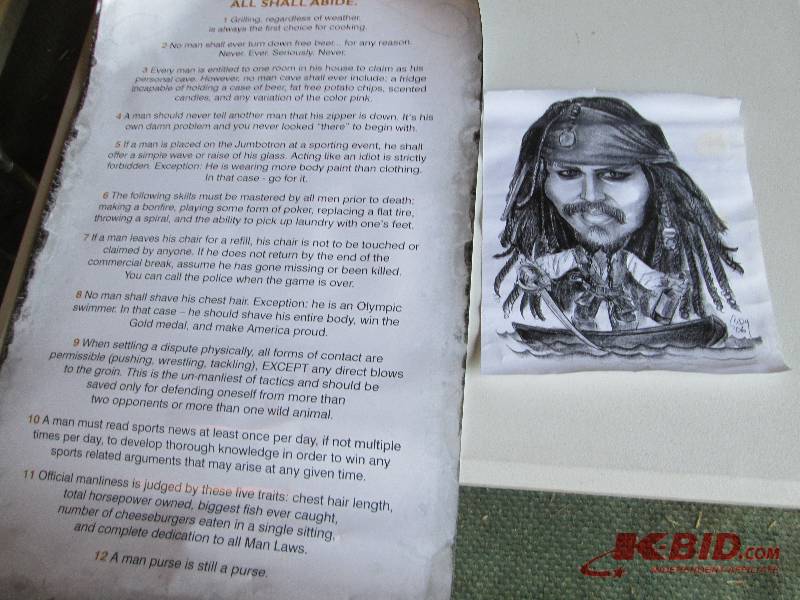 ALL SHALL ABIDE.
1 Grilling, regardless of weather,
is always the first choice for cooking.
2 No man shall ever turn down free beer... for any reason.
Never. Ever. Seriously. Never.
3 Every man is entitled to one room in his house to claim as his
personal cave. However, no man cave shall ever include: a fridge
incapable of holding a case of beer, fat free potato chips, scented
candles, and any variation of the color pink.
4 A man should never tell another man that his zipper is down. It's his
own damn problem and you never looked "there" to begin with.
5 If a man is placed on the Jumbotron at a sporting event, he shall
offer a simple wave or raise of his glass. Acting like an idiot is strictly
forbidden. Exception: He is wearing more body paint than clothing.
In that case - go for it.
6 The following skills must be mastered by all men prior to death:
making a bonfire, playing some form of poker, replacing a flat tire,
throwing a spiral, and the ability to pick up laundry with one's feet.
7 If a man leaves his chair for a refill, his chair is not to be touched or
claimed by anyone. If he does not return by the end of the
commercial break, assume he has gone missing or been killed.
You can call the police when the game is over.
8 No man shall shave his chest hair. Exception: he is an Olympic
swimmer. In that case – he should shave his entire body, win the
Gold medal, and make America proud.
9 When settling a dispute physically, all forms of contact are
permissible (pushing, wrestling, tackling), EXCEPT any direct blows
to the groin. This is the un-manliest of tactics and should be
saved only for defending oneself from more than
two opponents or more than one wild animal.
10 A man must read sports news at least once per day, if not multiple
times per day, to develop thorough knowledge in order to win any
sports related arguments that may arise at any given time.
11 Official manliness is judged by these five traits: chest hair length,
total horsepower owned, biggest fish ever caught,
number of cheeseburgers eaten in a single sitting,
and complete dedication to all Man Laws.
12 A man purse is still a purse.
'06
K-BID.COM
INDEPENDENT AFFILIATE